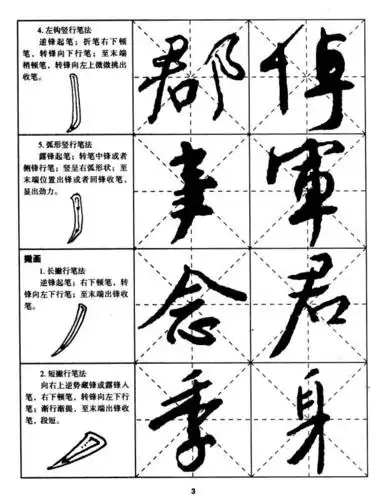 4.左钩竖行笔法
逆锋起笔；折笔右下顿
笔，转锋向下行笔；至末端
稍顿笔，转锋向左上微微挑出
收笔。
郡 倬
5.弧形竖行笔法
露锋起笔；转笔中锋或者
侧锋行笔；竖呈右弧形状；至
末端位置出锋或者回锋收笔，
显出劲力。
事 军
撇画
1.长撇行笔法
逆锋起笔；右下顿笔，转
锋向左下行笔；至末端出锋收
笔。
念 君
2.短撇行笔法
向右上逆势藏锋或露锋入
笔，右下顿笔，转锋向左下行
笔；渐行渐提，至末端出锋收
笔，段短。
季 身
3